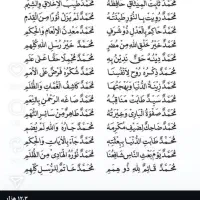 مُحَمَّدٌ ثَابِتُ الْمِيثَاقِ حَافِظُهُ مُحَمَّدٌ طَيِّبُ الْأَخْلَاقِ وَالشِّيَمِ
مُحَمَّدٌ رُوِيَتْ بِالنُّورِ طِينَتُهُ مُحَمَّدٌ لَمْ يَزَلْ نُورًا مِنَ الْقِدَمِ
مُحَمَّدٌ حَاكِمٌ بِالْعَدْلِ ذُو شَرَفٍ مُحَمَّدٌ مَعْدِنُ الْإِنْعَامِ وَالْحِكَمِ
مُحَمَّدٌ خَيْرُ خَلْقِ اللهِ مِنْ مُضَرٍ مُحَمَّدٌ خَيْرُ رُسْلِ اللهِ كُلِّهِمِ
مُحَمَّدٌ دِينُهُ حَقٌّ نَدِينُ بِهِ مُحَمَّدٌ
مُحَمَّدٌ ذِكْرُهُ رُوحٌ لِأَنْفُسِنَا مُحَمَّدٌ شُكْرُهُ فَرْضٌ عَلَى الْأُمَمِ
مُحَمَّدٌ زِينَةُ الدُّنْيَا وَبَهْجَتُهَا مُحَمَّدٌ كَاشِفُ الْغُمَّاتِ وَالظُّلَمِ
مُحَمَّدٌ سَيِّدٌ طَابَتْ مَنَاقِبُهُ مُحَمَّدٌ صَاغَهُ الرَّحْمٰنُ بِالنِّعَمِ
مُحَمَّدٌ صَفْوَةُ الْبَارِي وَخِيرَتُهُ مُحَمَّدٌ طَاهِرٌ مِنْ سَائِرِ التُّهَمِ
مُحَمَّدٌ ضَاحِكٌ لِلضَّيْفِ مُكْرِمُهُ مُحَمَّدٌ جَارُهُ وَاللهِ لَمْ يُضَمِ
مُحَمَّدٌ طَابَتِ الدُّنْيَا بِبِعْثَتِهِ مُحَمَّدٌ جَاءَ بِالْآيَاتِ وَالْحِكَمِ
مُحَمَّدٌ يَوْمَ بَعْثِ النَّاسِ شَافِعُنَا مُحَمَّدٌ نُورُهُ الْهَادِي مِنَ الظُّلَمِ
مُحَمَّدٌ قَائِمٌ لِلّٰهِ ذُو هِمَمٍ مُحَمَّدٌ خَاتَمٌ لِلرُّسْلِ كُلِّهِمِ
١٢٫٣ هزار